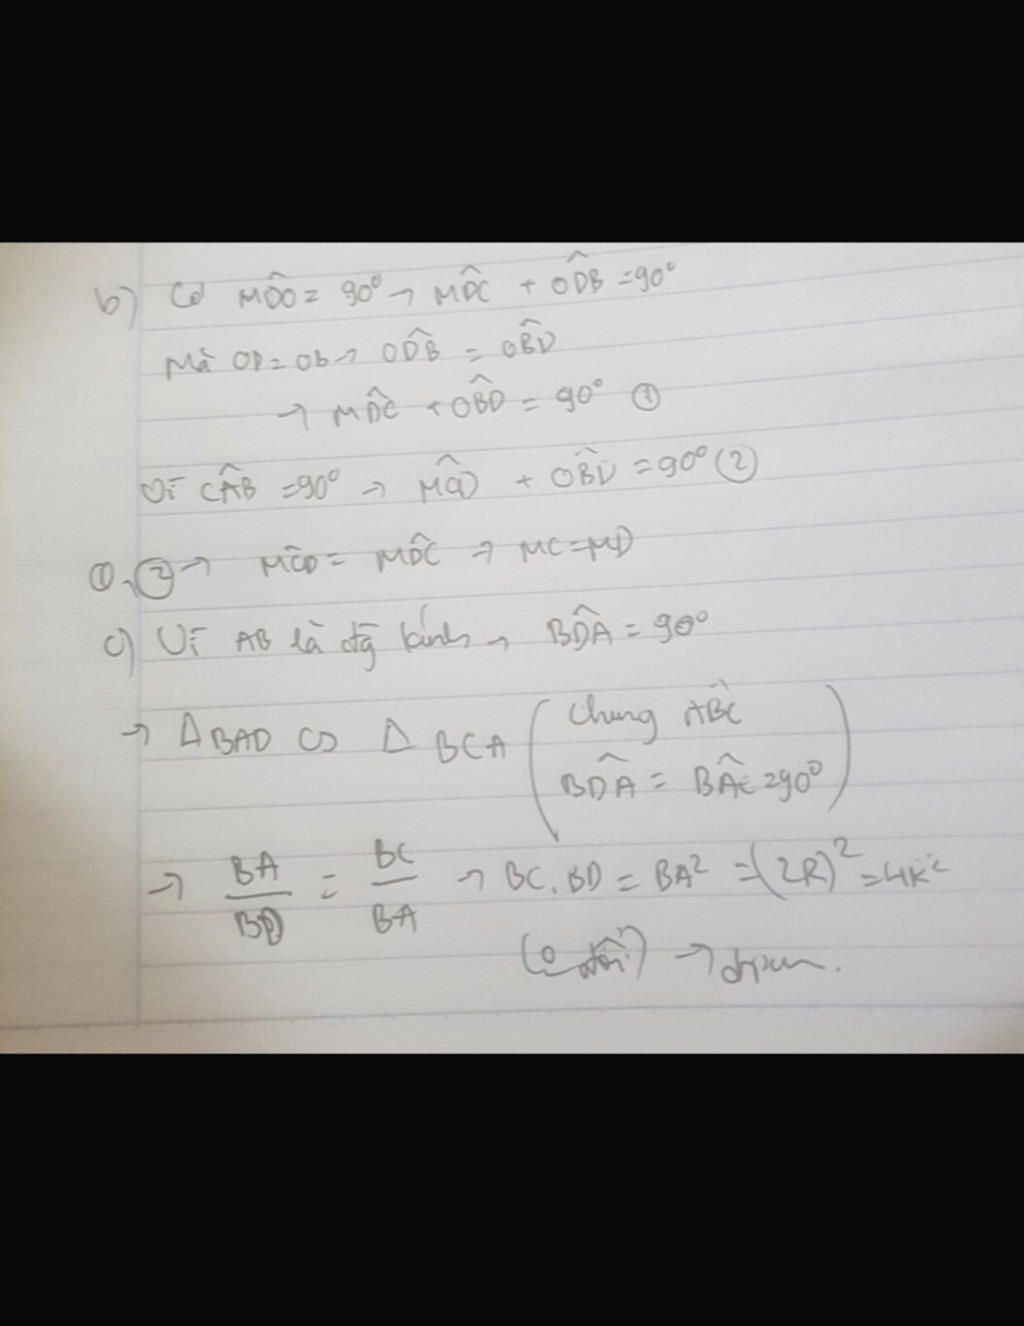 b) Có MD̂O = 90° → MD̂C + OD̂B = 90°
Mà OD = OB → OD̂B = OB̂D
→ MD̂C + OB̂D = 90° ①
Vì CÂB = 90° → MĈD + OB̂D = 90° ②
①, ② → MĈD = MD̂C → MC = MD
c) Vì AB là đg kính → BD̂A = 90°
→ ΔBAD ∽ ΔBCA ( Chung AB̂C
BD̂A = BÂC = 90° )
→ BA/BD = BC/BA → BC.BD = BA² = (2R)² = 4R²
(o đổi) → đpcm.